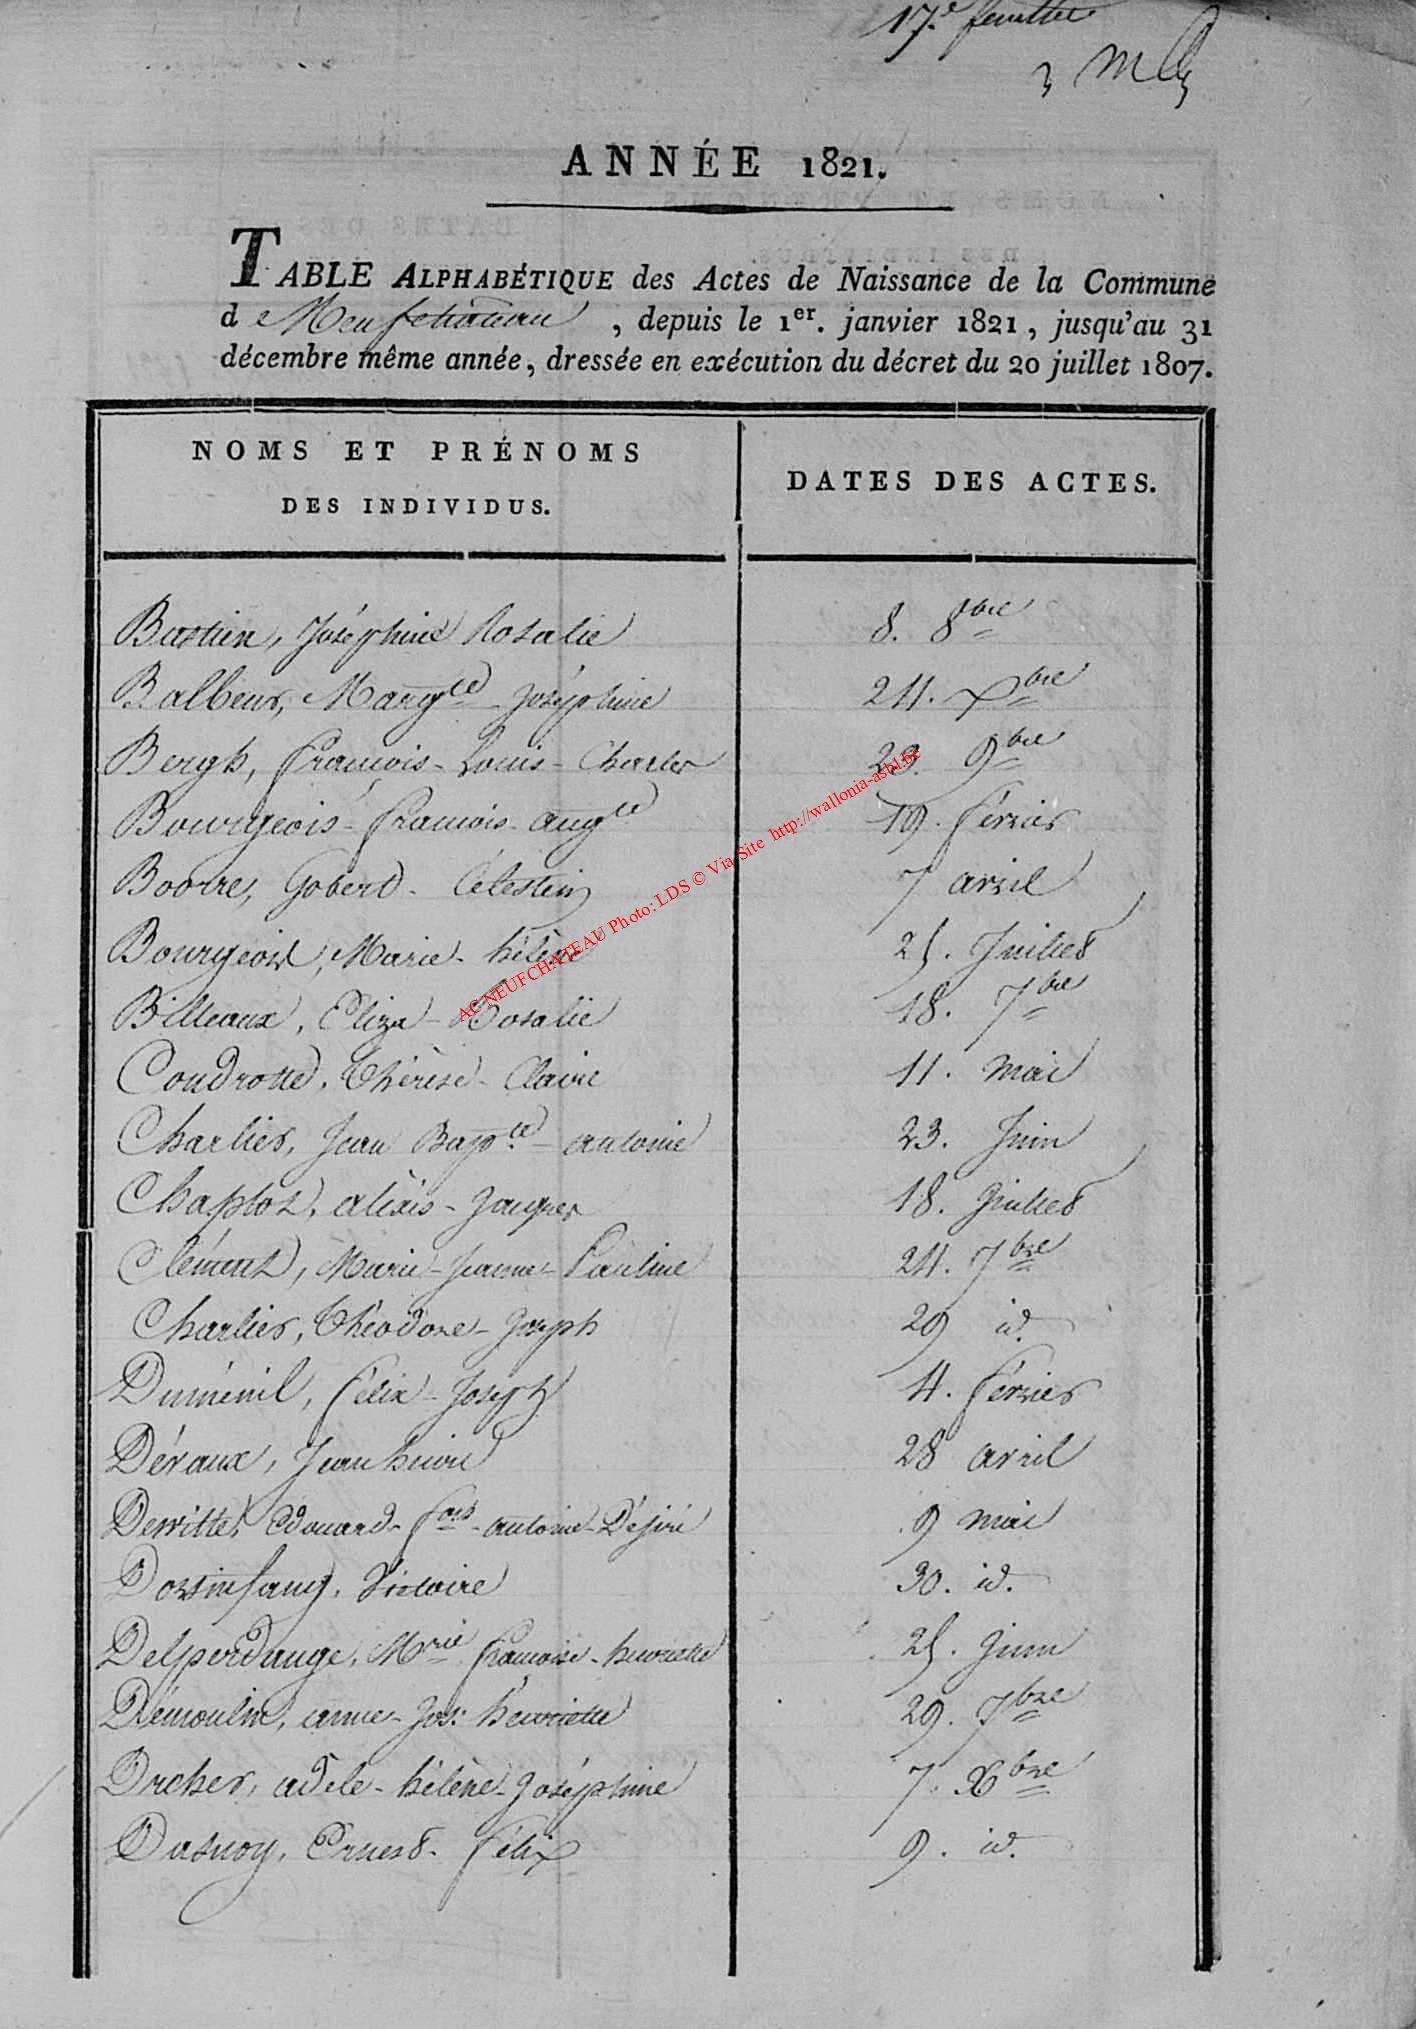 17e. feuillet
ANNÉE 1821.
TABLE ALPHABÉTIQUE des Actes de Naissance de la Commune
d e Neufchateau, depuis le 1er. janvier 1821, jusqu'au 31
décembre même année, dressée en exécution du décret du 20 juillet 1807.
NOMS ET PRÉNOMS
DES INDIVIDUS.
DATES DES ACTES.
Bastien, Joséphine Rosalie 8. 8bre
Balbeur, Margte Joséphine 24. Xbre
Bergh, François-Louis-Charles 23. 9bre
Bourgeois-François-Augte 19. février
Boorre, Gobert-Célestin 7 avril
Bourgeois, Marie-hélène 25. Juillet
Billeaux, Eliza-Rosalie 18. 7bre
Coudrotte, Thérèse-Claire 11. mai
Charlier, Jean Bapte-antoine 23. Juin
Chaplot, alexis-Jacques 18. Juillet
Clément, Marie-Jeanne-Pauline 24. 7bre
Charlier, Théodore-Joseph 29 id.
Duménil, félix-Joseph 4. février
Dévaux, Jean henri 28 avril
Dewitte, Edouard-fois-antoine-Désiré 9 mai
Dossinfang, Victoire 30. id.
Delperdange, Mrie françoise-henriette 25. Juin
Démoulin, anne-Jos: henriette 29. 7bre
Drcher, adèle-hélène-Joséphine 7. Xbre
Dasnoy, Ernest-félix 9. id.
AC NEUFCHATEAU Photo: LDS © Via Site http://wallonia-asbl.be